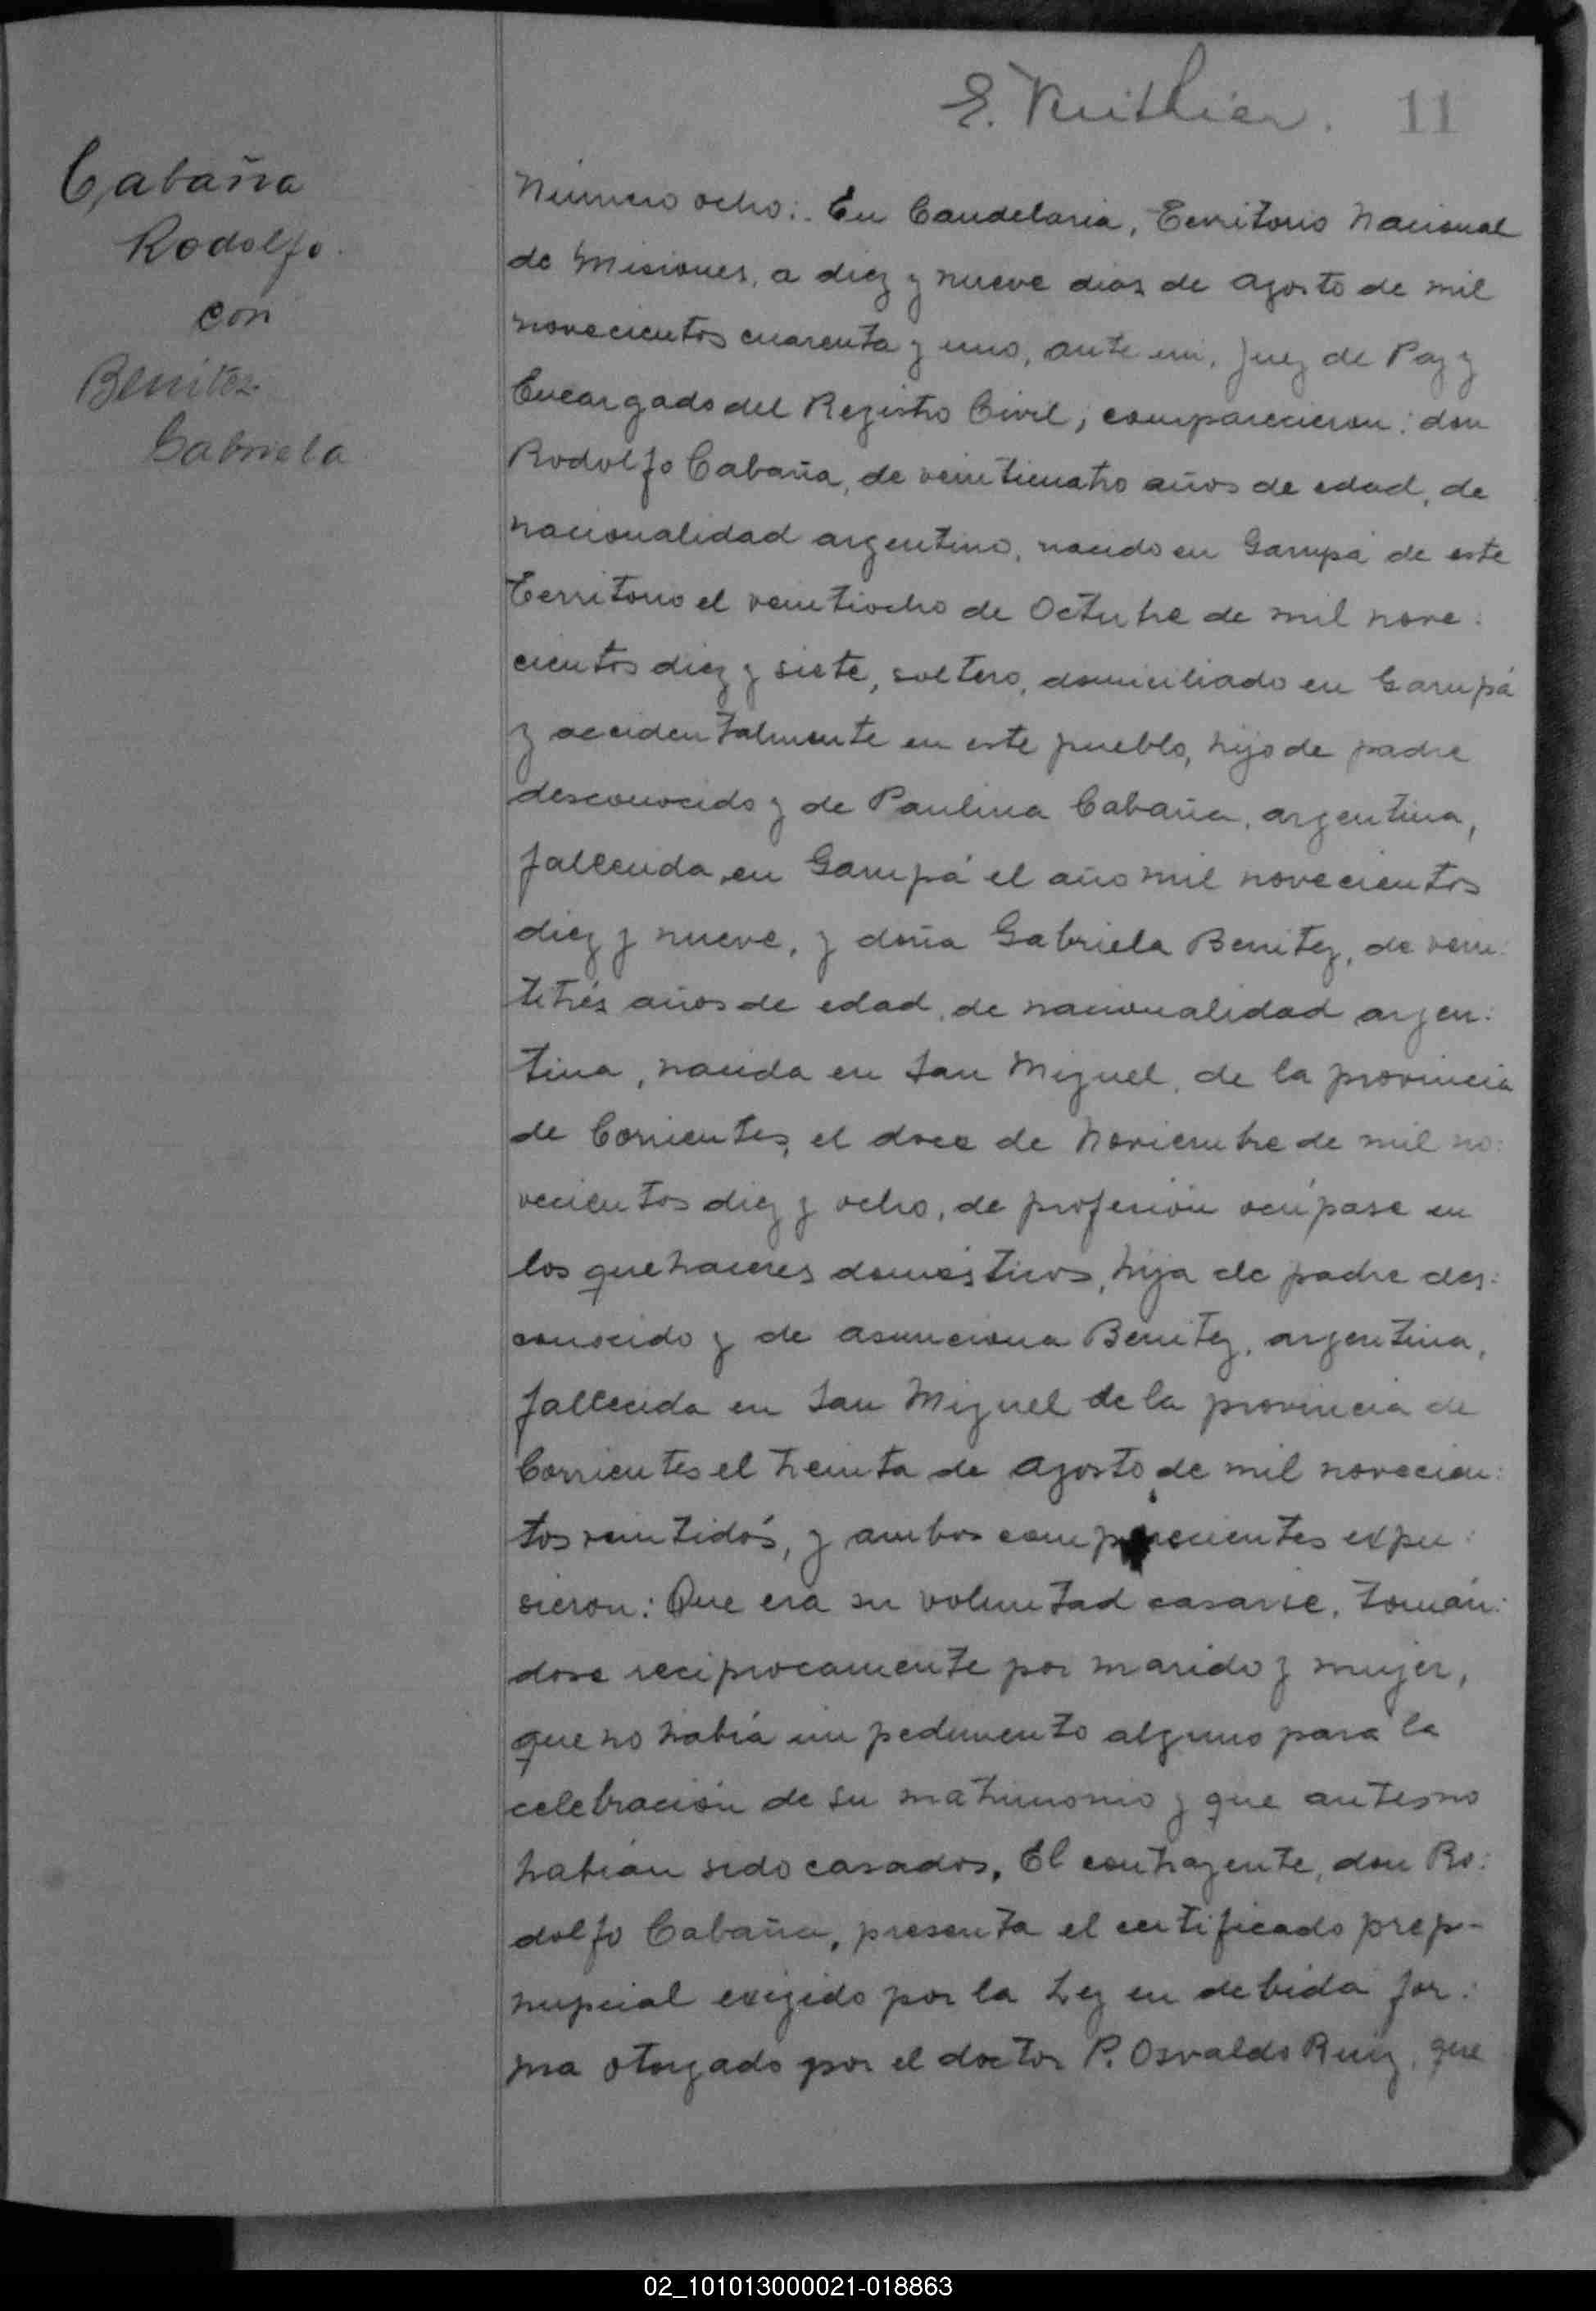 11
Cabaña
Rodolfo
con
Benitez
Gabriela
Número ocho: En Candelaria, Territorio Nacional
de Misiones, a diez y nueve dias de Agosto de mil
novecientos cuarenta y uno, ante mi, Juez de Paz y
Encargado del Registro Civil, comparecieron: don
Rodolfo Cabaña, de veinticuatro años de edad, de
nacionalidad argentino, nacido en Garupá de este
Territorio el veintiocho de Octubre de mil nove:
cientos diez y siete, soltero, domiciliado en Garupá
y accidentalmente en este pueblo, hijo de padre
desconocido y de Paulina Cabaña, argentina,
fallecida en Garupá el año mil novecientos
diez y nueve, y doña Gabriela Benitez, de vein:
titrés años de edad, de nacionalidad argen:
tina, nacida en San Miguel, de la provincia
de Corrientes, el doce de Noviembre de mil no:
vecientos diez y ocho, de profesión ocúpase en
los quehaceres domésticos, hija de padre des:
conocido y de Asunciona Benitez, argentina,
fallecida en San Miguel de la provincia de
Corrientes el treinta de Agosto de mil novecien:
tos veintidós, y ambos comparecientes expu:
sieron: Que era su voluntad casarse, tomán:
dose reciprocamente por marido y mujer,
que no habia impedimento alguno para la
celebración de su matrimonio y que antes no
habian sido casados. El contrayente, don Ro:
dolfo Cabaña, presenta el certificado prep-
nupcial exigido por la Ley en debida for:
ma otorgado por el doctor P. Osvaldo Ruiz, que
02_101013000021-018863